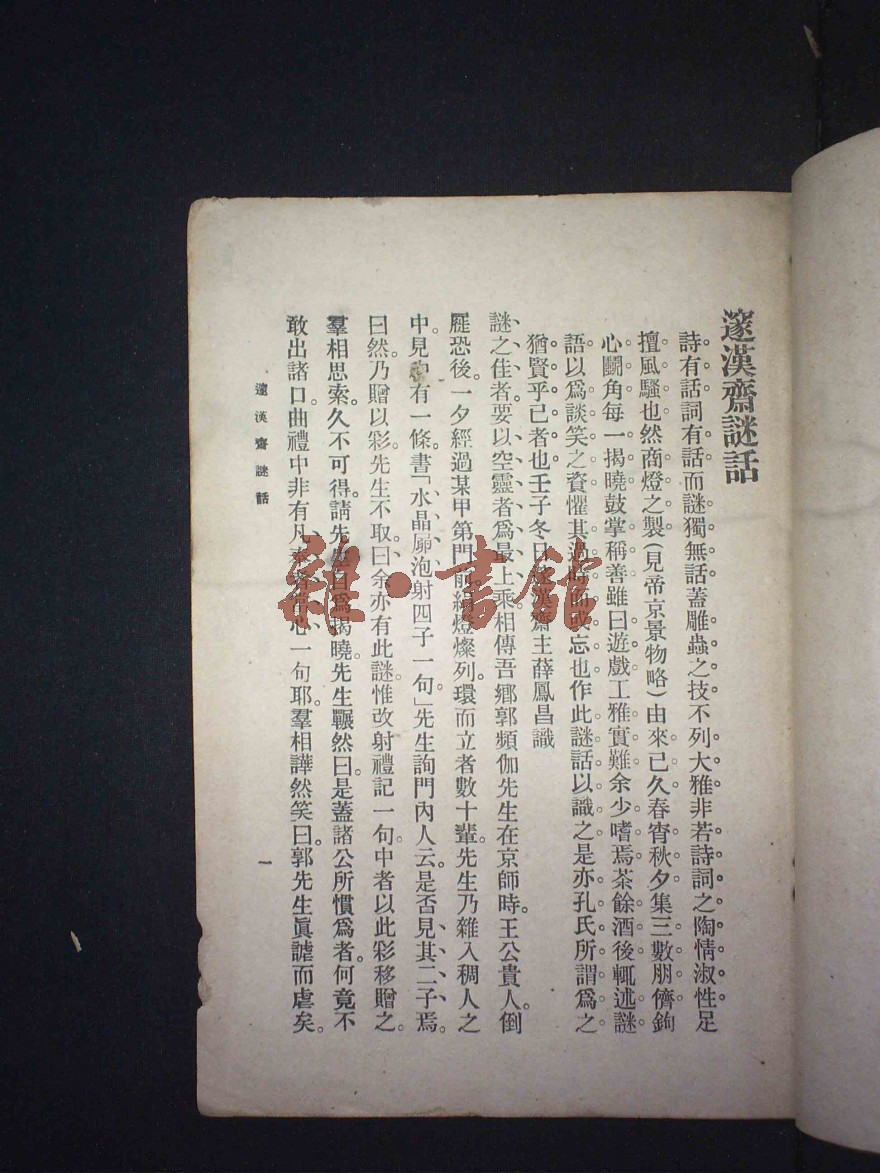 邃漢齋謎話
詩有話詞有話而謎獨無話蓋雕蟲之技不列大雅非若詩詞之陶情淑性足
擅風騷也然商燈之製(見帝京景物略)由來已久春宵秋夕集三數朋儕鉤
心鬭角每一揭曉鼓掌稱善雖曰遊戲工雅實難余少嗜焉茶餘酒後輒述謎
語以爲談笑之資懼其過時而或忘也作此謎話以識之是亦孔氏所謂爲之
猶賢乎已者也壬子冬日邃漢齋主薛鳳昌識
謎之佳者要以空靈者爲最上乘相傳吾鄉郭頻伽先生在京師時。王公貴人。倒
屣恐後。一夕經過某甲第門前絹燈燦列。環而立者數十輩。先生乃雜入稠人之
中。見中有一條。書「水晶泡射四子一句」先生詢門內人云。是否見其二子焉。
曰然。乃贈以彩先生不取。曰余亦有此謎惟改射禮記一句。中者以此彩移贈之。
羣相思索。久不可得。請先生自爲揭曉。先生囅然曰。是蓋諸公所慣爲者。何竟不
敢出諸口。曲禮中非有凡奉者當心一句耶。羣相譁然笑曰。郭先生眞謔而虐矣。
邃漢齋謎話
一
雜·書館